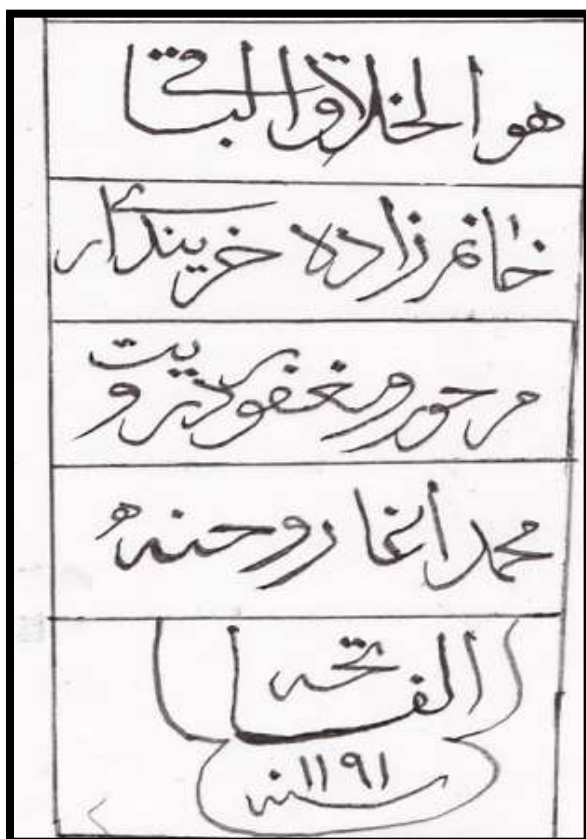 هو الخلاق الباقے
خانم زاده
مرحوم ومغفور
محمد اغا روحنه
الفاتحه
سنه ١١٩١